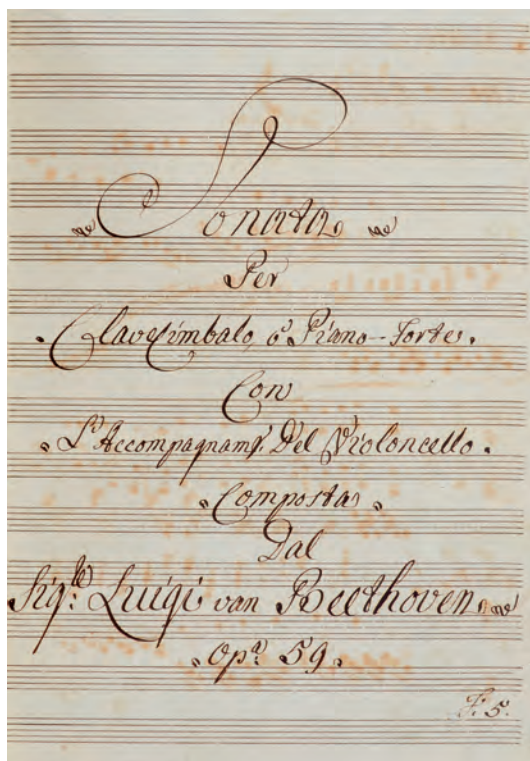 Sonata
Per
Clavecimbalo, ò Piano-Forte.
Con
L'Accompagnamt. Del Violoncello.
Composta
Dal
Sigre: Luigi van Beethoven
Opa. 59.
F. 5.